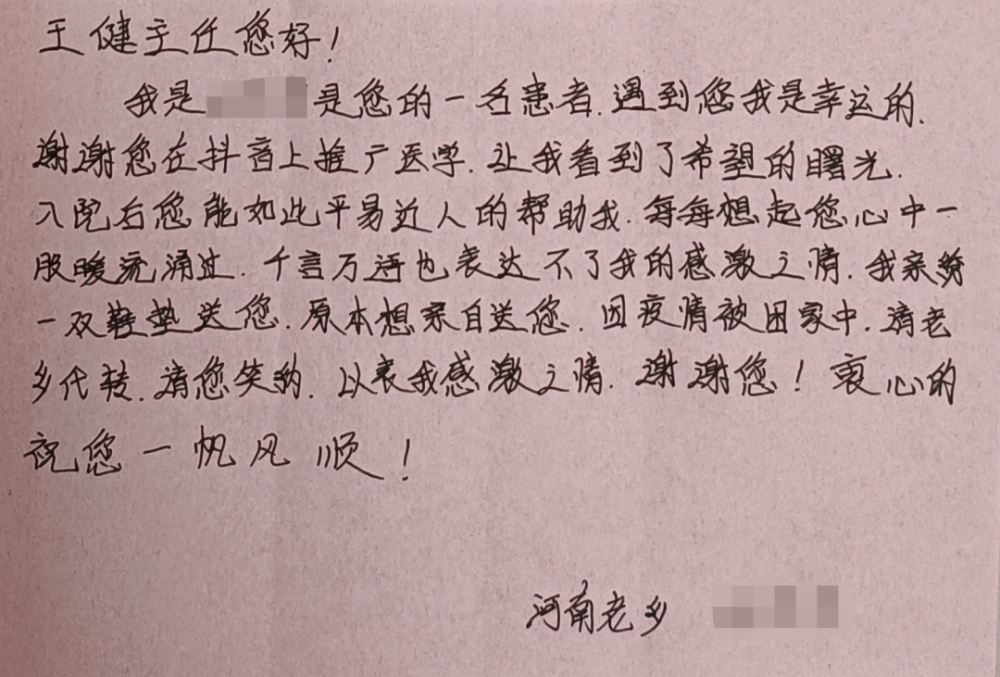 王健主任您好！
我是 是您的一名患者.遇到您我是幸运的.
谢谢您在抖音上推广医学.让我看到了希望的曙光.
入院后您能如此平易近人的帮助我.每每想起您心中一
股暖流涌过.千言万语也表达不了我的感激之情.我亲纳
一双鞋垫送您.原本想亲自送您.因疫情被困家中.请老
乡代转.请您笑纳.以表我感激之情.谢谢您！衷心的
祝您一帆风顺！
河南老乡